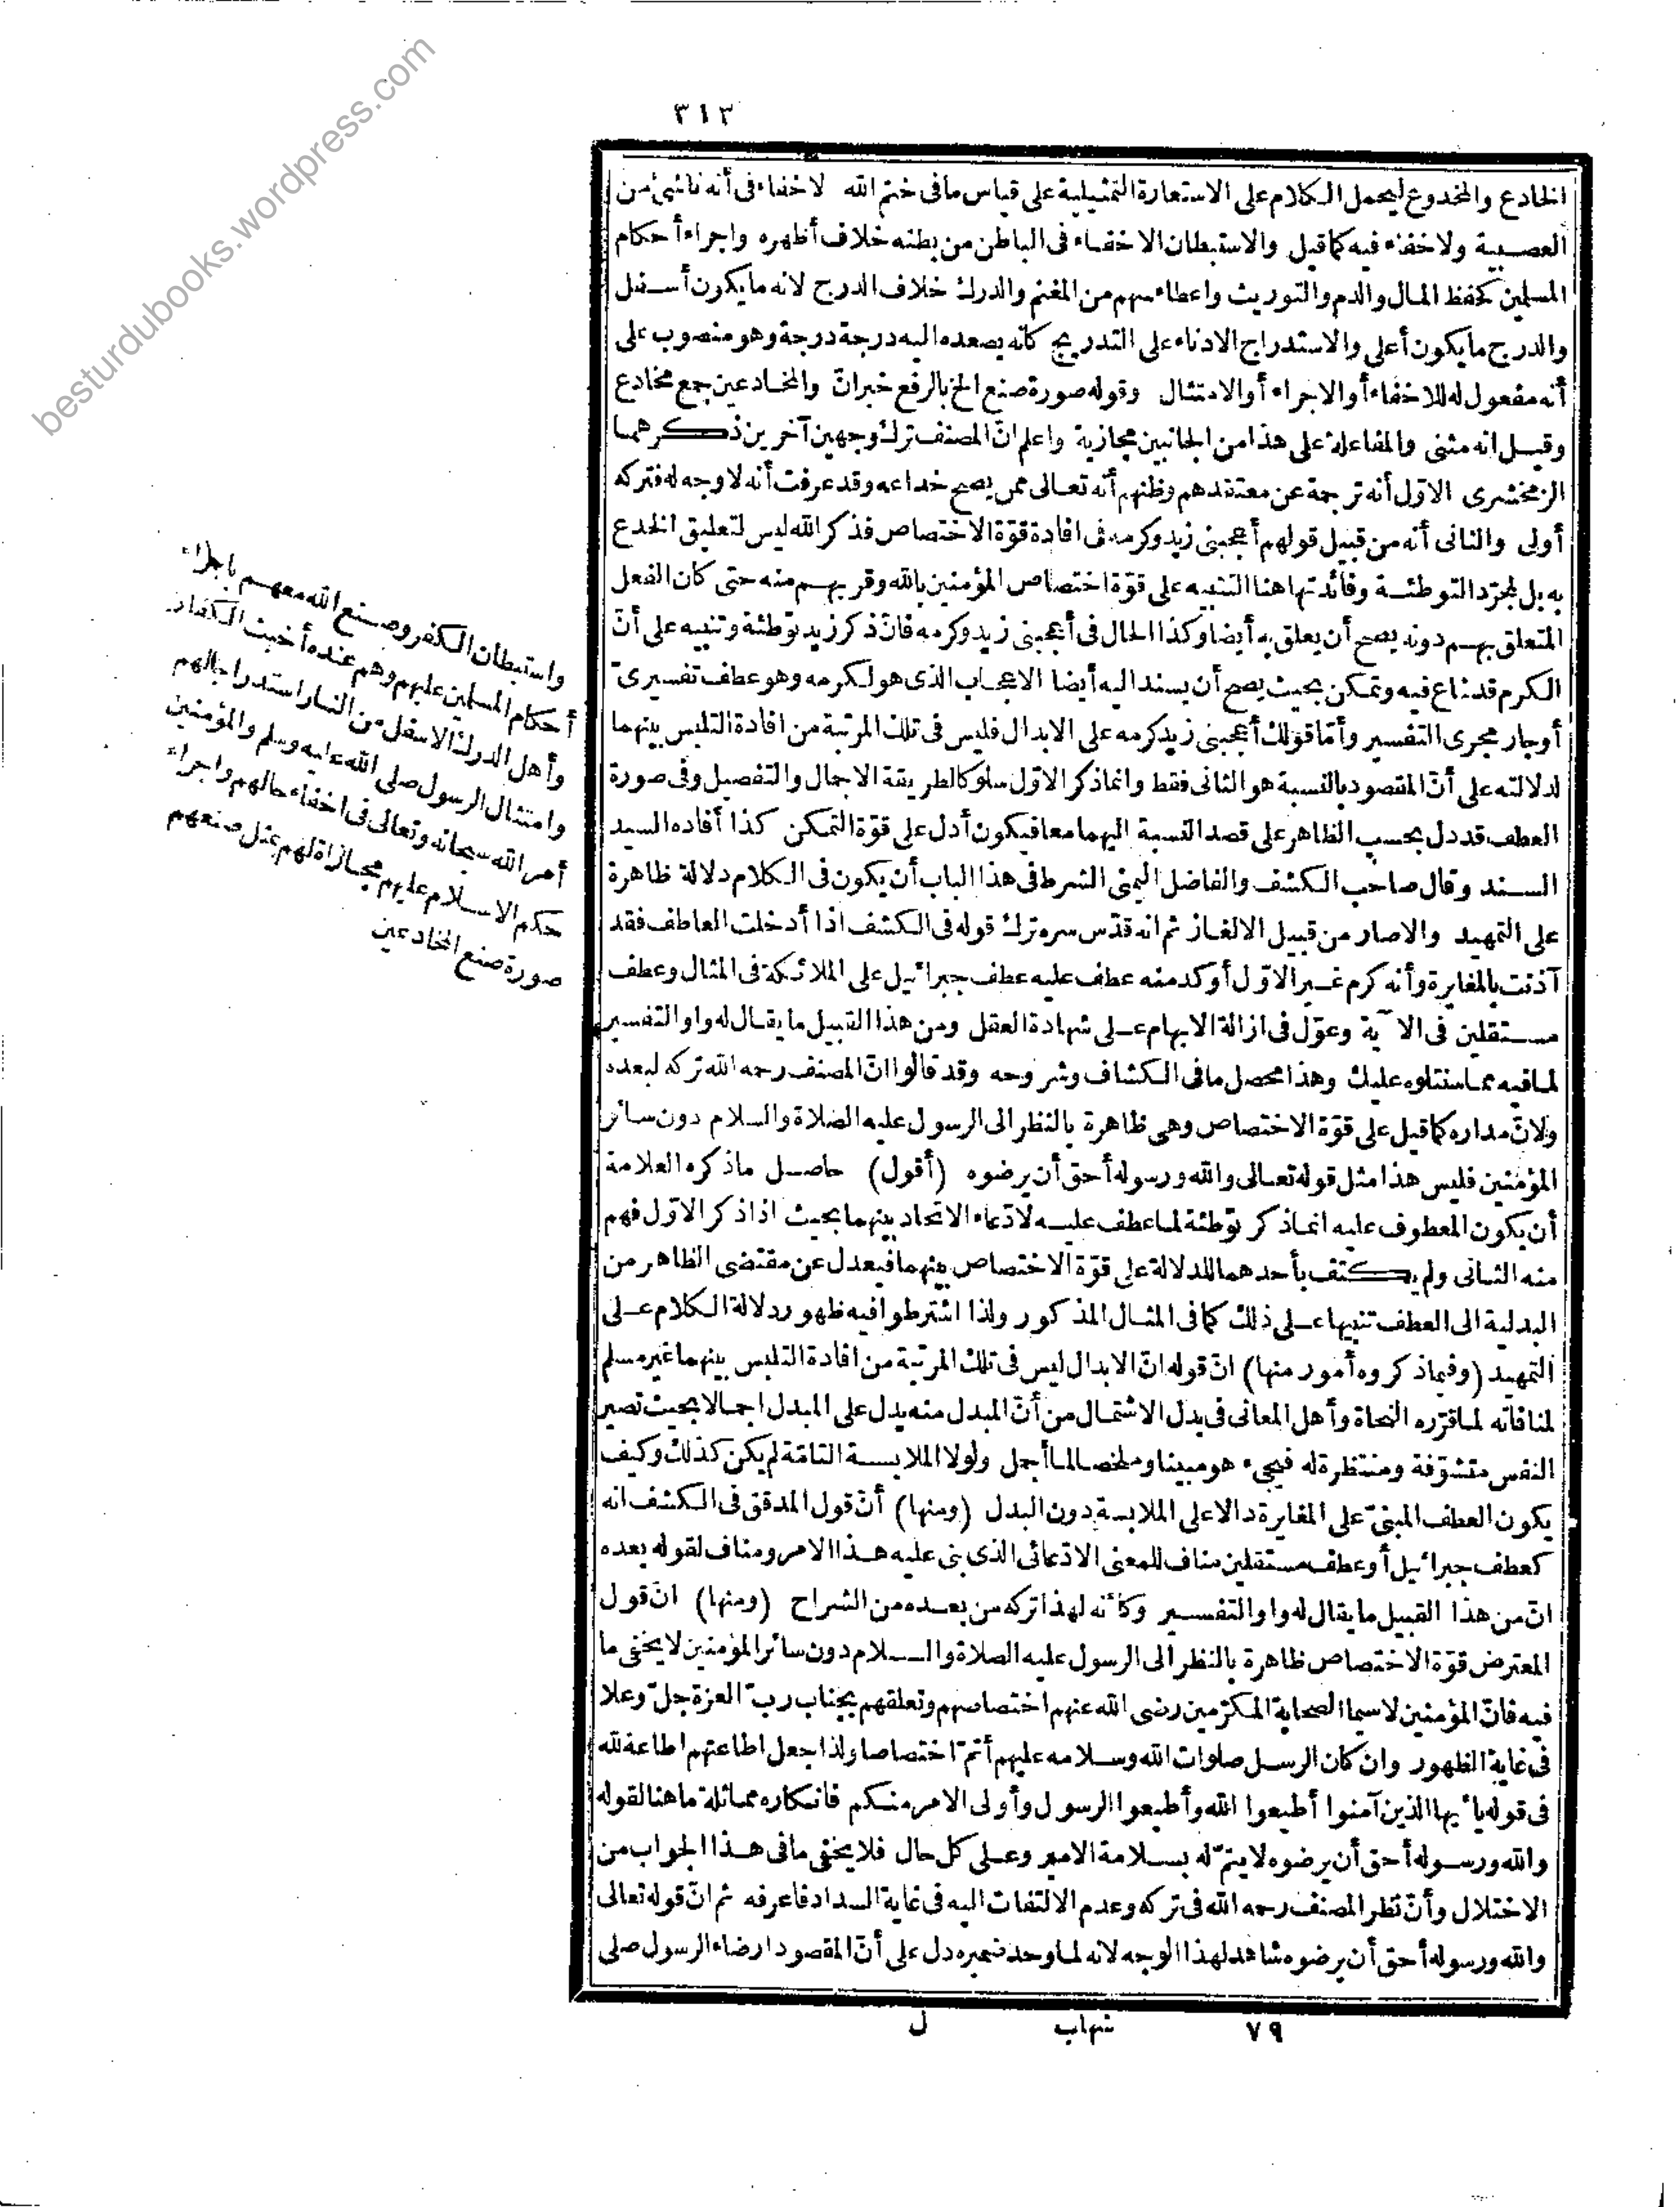 ٣١٣
الخادع والمخدوع ليحمل الكلام على الاستعارة التمثيلية على قياس ما فى ختم الله لا خفاء فى أنه ناشئ من
العصبية ولا خفاء فيه كما قيل والاستبطان الاخفاء فى الباطن من بطنه خلاف أظهره واجراء أحكام
المسلمين كحفظ المال والدم والتوريث واعطاء سهم من المغنم والدرك خلاف الدرج لانه ما يكون أسفل
والدرج ما يكون أعلى والاستدراج الادناء على التدريج كأنه يصعده اليه درجة درجة وهو منصوب على
أنه مفعول له للاخفاء أو الاجراء أو الامتثال وقوله صورة صنع الخ بالرفع خبر انّ والمخادعين جمع مخادع
وقيل انه مثنى والمفاعلة على هذا من الجانبين مجازية واعلم انّ المصنف ترك وجهين آخرين ذكرهما
الزمخشرى الاوّل أنه ترجمة عن معتقدهم وظنهم أنه تعالى ممن يصح خداعه وقد عرفت أنه لا وجه له فتركه
أولى والثانى أنه من قبيل قولهم أعجبنى زيد وكرمه فى افادة قوّة الاختصاص فذكر الله ليس لتعليق الخدع
به بل لمجرّد التوطئة وفائدتها هنا التنبيه على قوّة اختصاص المؤمنين بالله وقربهم منه حتى كان الفعل
المتعلق بهم دونه يصح أن يعلق به أيضا وكذا الحال فى أعجبنى زيد وكرمه فانّ ذكر زيد توطئة وتنبيه على أنّ
الكرم قد شاع فيه وتمكن بحيث يصح أن يسند اليه أيضا الاعجاب الذى هو لكرمه وهو عطف تفسيرىّ
أوجار مجرى التفسير وأمّا قولك أعجبنى زيد كرمه على الابدال فليس فى تلك المرتبة من افادة التلبس بينهما
لدلالته على أنّ المقصود بالنسبة هو الثانى فقط وانما ذكر الاوّل سلوكا لطريقة الاجمال والتفصيل وفى صورة
العطف قد دل بحسب الظاهر على قصد النسبة اليهما معا فيكون أدل على قوّة التمكن كذا أفاده السيد
السند وقال صاحب الكشف والفاضل اليمنى الشرط فى هذا الباب أن يكون فى الكلام دلالة ظاهرة
على التمهيد والاصار من قبيل الالغاز ثم انه قدّس سره ترك قوله فى الكشف اذا أدخلت العاطف فقد
آذنت بالمغايرة وأنه كرم غير الاوّل أوكد منه عطف عليه عطف جبرائيل على الملائكة فى المثال وعطف
مستقلين فى الآية وعوّل فى ازالة الابهام على شهادة العقل ومن هذا القبيل ما يقال له واو التفسير
لما فيه مما سنتلوه عليك وهذا محصل ما فى الكشاف وشروحه وقد قالوا انّ المصنف رحمه الله تركه لبعده
ولانّ مداره كما قيل على قوّة الاختصاص وهى ظاهرة بالنظر الى الرسول عليه الصلاة والسلام دون سائر
المؤمنين فليس هذا مثل قوله تعالى والله ورسوله أحق أن يرضوه (أقول) حاصل ماذكره العلامة
أن يكون المعطوف عليه انما ذكر توطئة لما عطف عليه لادّعاء الاتحاد بينهما بحيث اذا ذكر الاوّل فهم
منه الثانى ولم يكتف بأحدهما للدلالة على قوّة الاختصاص بينهما فيعدل عن مقتضى الظاهر من
البدلية الى العطف تنبيها على ذلك كما فى المثال المذكور ولذا اشترطوا فيه ظهور دلالة الكلام على
التمهيد (وفيما ذكروه أمور منها) انّ قوله انّ الابدال ليس فى تلك المرتبة من افادة التلبس بينهما غير مسلم
لمنافاته لما قرّره النحاة وأهل المعانى فى بدل الاشتمال من أنّ المبدل منه يدل على المبدل اجمالا بحيث تصير
النفس متشوّفة ومنتظرة له فيجىء هو مبينا وملخصا لما أجمل ولولا الملابسة التامّة لم يكن كذلك وكيف
يكون العطف المبنىّ على المغايرة دالا على الملابسة دون البدل (ومنها) أنّ قول المدقق فى الكشف انه
كعطف جبرائيل أو عطف مستقلين مناف للمعنى الادّعائى الذى بنى عليه هذا الامر ومناف لقوله بعده
انّ من هذا القبيل ما يقال له واو التفسير وكأنه لهذا تركه من بعده من الشراح (ومنها) انّ قول
المعترض قوّة الاختصاص ظاهرة بالنظر الى الرسول عليه الصلاة والسلام دون سائر المؤمنين لا يخفى ما
فيه فانّ المؤمنين لاسيما الصحابة المكرّمين رضى الله عنهم اختصاصهم وتعلقهم بجناب ربّ العزة جلّ وعلا
فى غاية الظهور وان كان الرسل صلوات الله وسلامه عليهم أتمّ اختصاصا ولذا جعل اطاعتهم اطاعة لله
فى قوله يا أيها الذين آمنوا أطيعوا الله وأطيعوا الرسول وأولى الامر منكم فانكاره مماثلة ما هنا لقوله
والله ورسوله أحق أن يرضوه لا يتمّ له بسلامة الامير وعلى كل حال فلا يخفى ما فى هذا الجواب من
الاختلال وأنّ نظر المصنف رحمه الله فى تركه وعدم الالتفات اليه فى غاية السداد فاعرفه ثم انّ قوله تعالى
والله ورسوله أحق أن يرضوه شاهد لهذا الوجه لانه لما وحد ضميره دل على أنّ المقصود ارضاء الرسول صلى
واستبطان الكفر وصنع الله معهم باجراء
أحكام المسلمين عليهم وهم عنده أخبث الكفار
وأهل الدرك الاسفل من النار استدراجا لهم
وامتثال الرسول صلى الله عليه وسلم والمؤمنين
أمر الله سبحانه وتعالى فى اخفاء حالهم واجراء
حكم الاسلام عليهم مجازاة لهم بمثل صنعهم
صورة صنع المخادعين
٧٩ شهاب ل
besturdubooks.wordpress.com